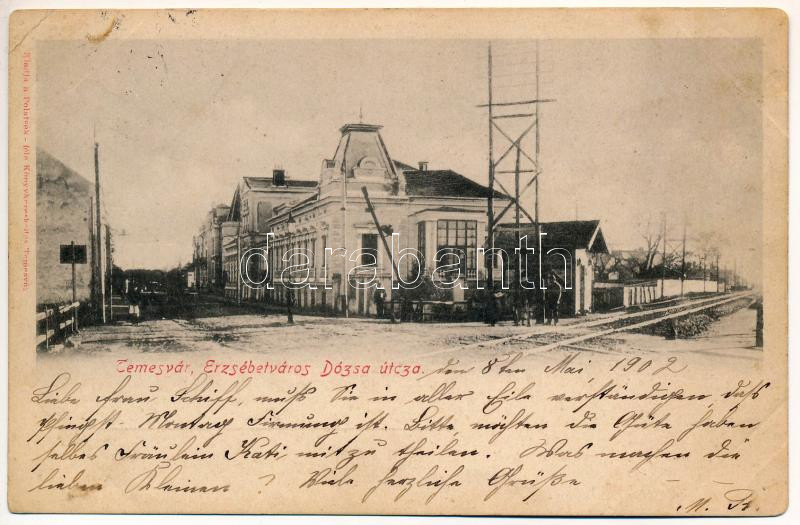 Kiadja a Polatsek-féle Könyvkereskedés Temesvár.
darabanth.com
Temesvár, Erzsébetváros Dózsa útcza.
den 8ten Mai 1902
Liebe Frau Schiff, muß Sie in aller Eile verständigen daß
Pfingst-Montag Firmung ist. Bitte möchten die Güte haben
selbes Fräulein Kati mit zu theilen. Was machen die
lieben Kleinen? Viele herzliche Grüße
M.